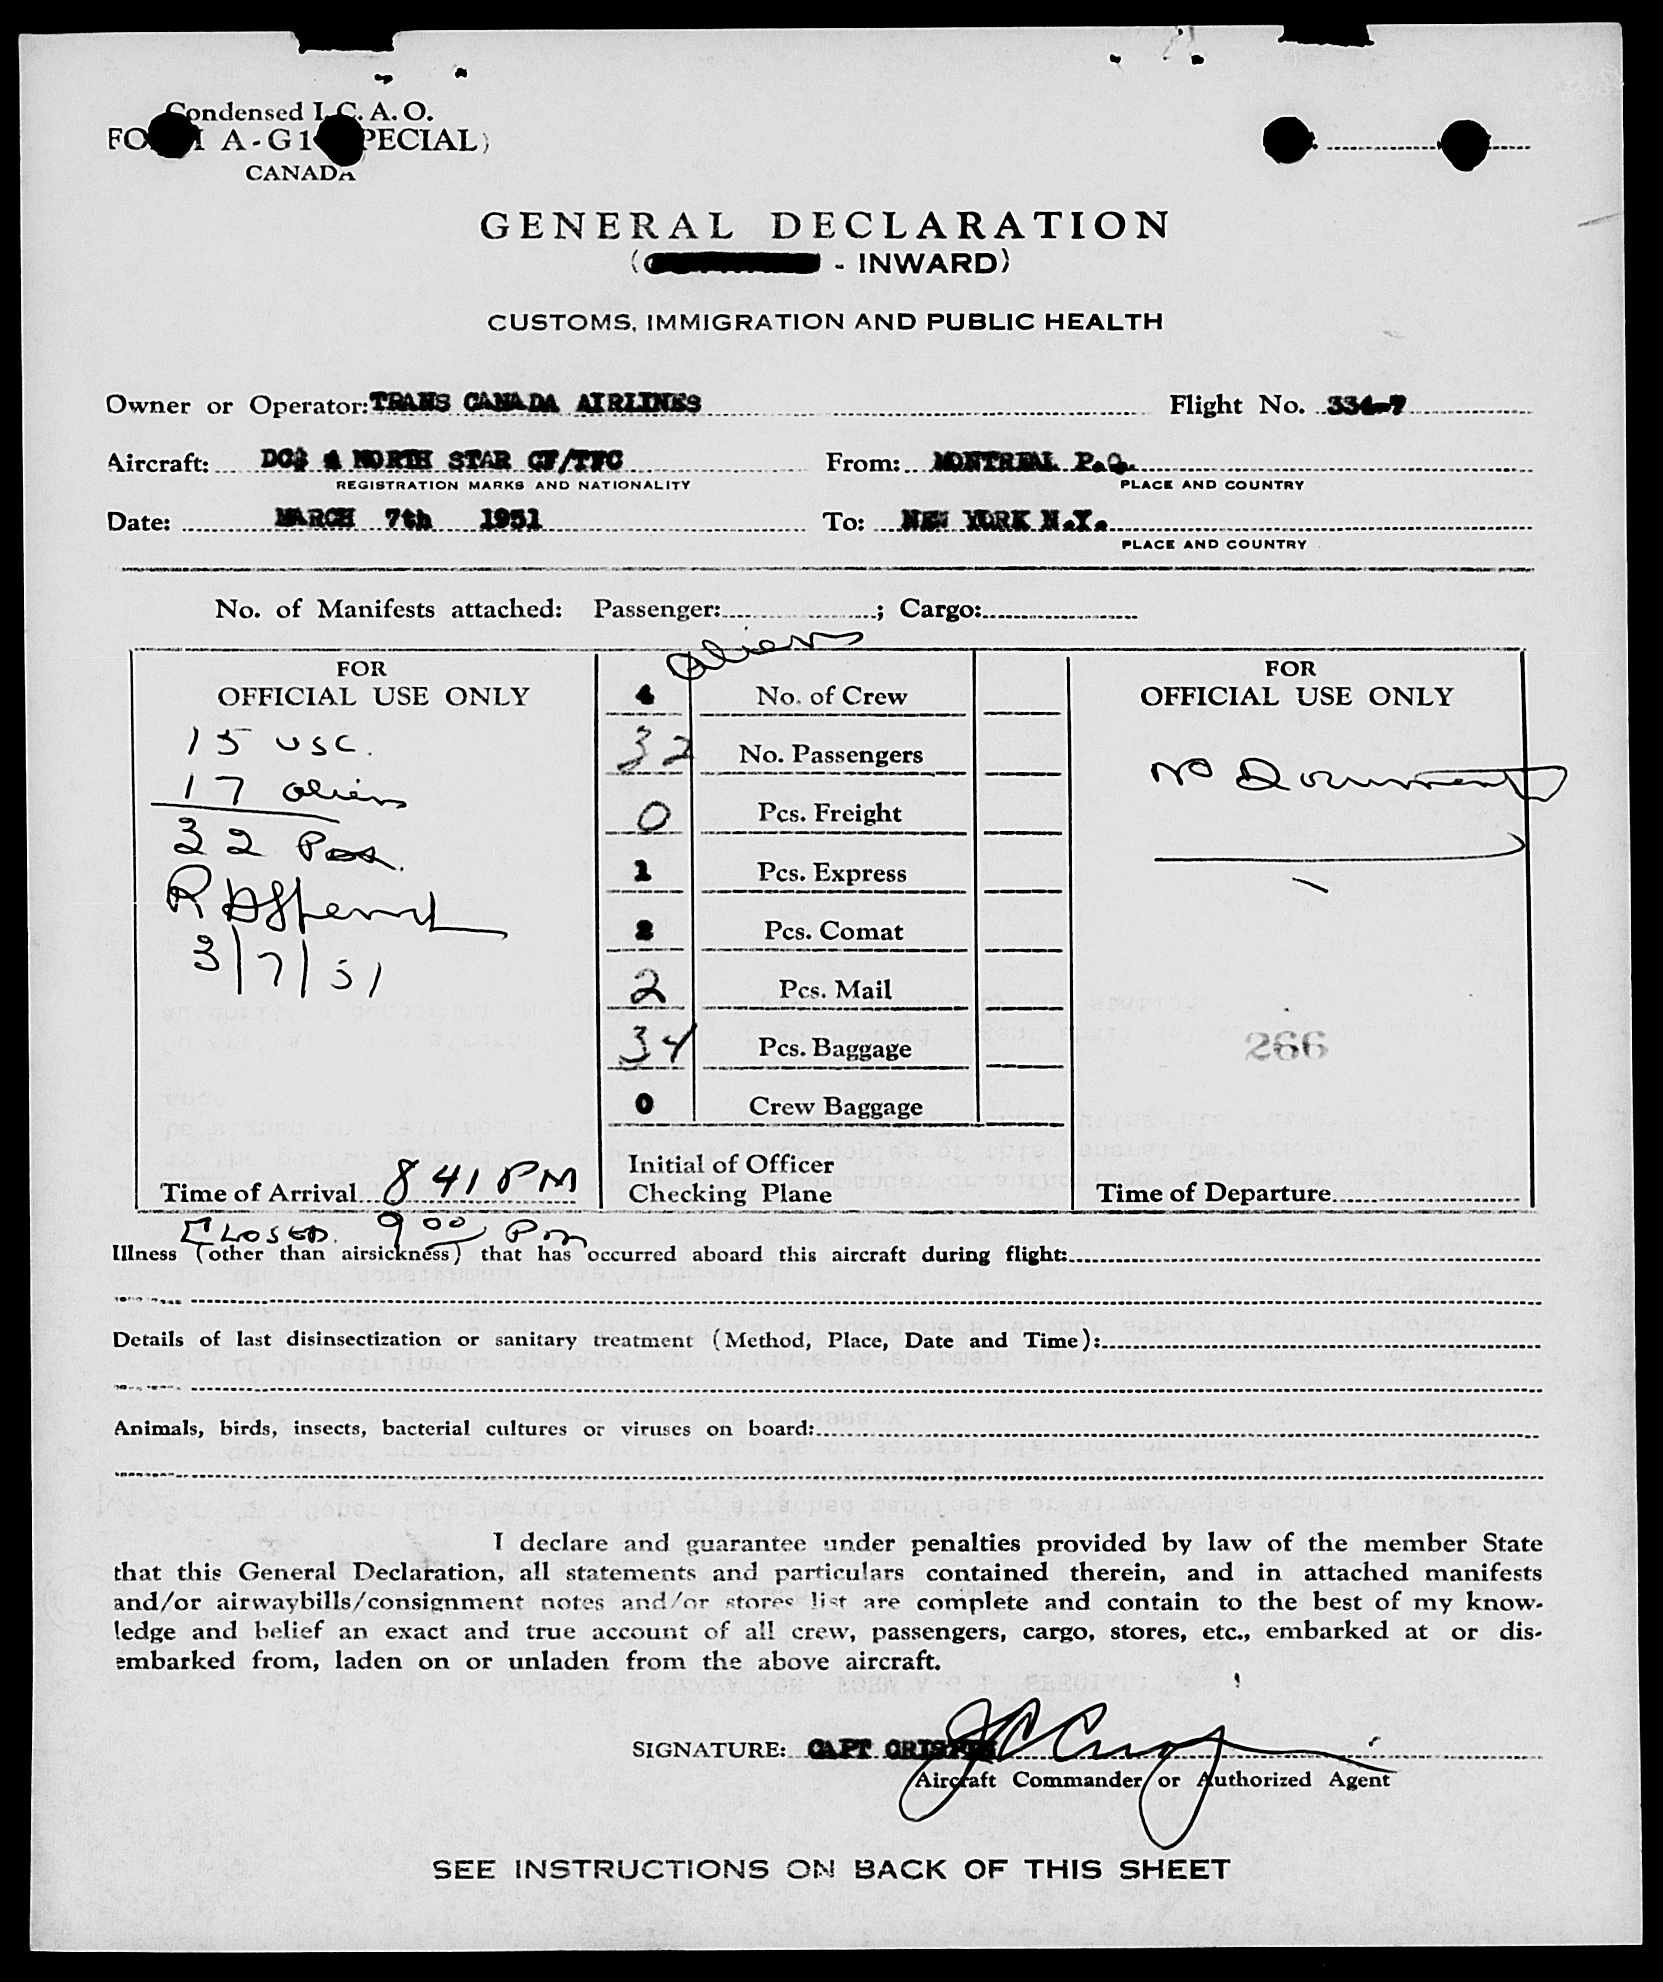 Condensed I.C.A.O.
FORM A-G1 (SPECIAL)
CANADA
GENERAL DECLARATION
( - INWARD)
CUSTOMS, IMMIGRATION AND PUBLIC HEALTH
Owner or Operator: TRANS CANADA AIRLINES Flight No. 334-7
Aircraft: NORTH STAR CF/TFC From: MONTREAL P.Q.
REGISTRATION MARKS AND NATIONALITY PLACE AND COUNTRY
Date: MARCH 7th 1951 To: NEW YORK N.Y.
PLACE AND COUNTRY
No. of Manifests attached: Passenger: ; Cargo:
aliens
FOR
OFFICIAL USE ONLY
15 USC.
17 aliens
32 Pax.
3/7/51
Time of Arrival 8 41 PM
CLOSED. 9 00 Pm
4 No. of Crew
32 No. Passengers
0 Pcs. Freight
1 Pcs. Express
2 Pcs. Comat
2 Pcs. Mail
34 Pcs. Baggage
0 Crew Baggage
Initial of Officer
Checking Plane
FOR
OFFICIAL USE ONLY
no Documents
266
Time of Departure
Illness (other than airsickness) that has occurred aboard this aircraft during flight:
Details of last disinsectization or sanitary treatment (Method, Place, Date and Time):
Animals, birds, insects, bacterial cultures or viruses on board:
I declare and guarantee under penalties provided by law of the member State
that this General Declaration, all statements and particulars contained therein, and in attached manifests
and/or airwaybills/consignment notes and/or stores list are complete and contain to the best of my know-
ledge and belief an exact and true account of all crew, passengers, cargo, stores, etc., embarked at or dis-
embarked from, laden on or unladen from the above aircraft.
SIGNATURE: CAPT
Aircraft Commander or Authorized Agent
SEE INSTRUCTIONS ON BACK OF THIS SHEET